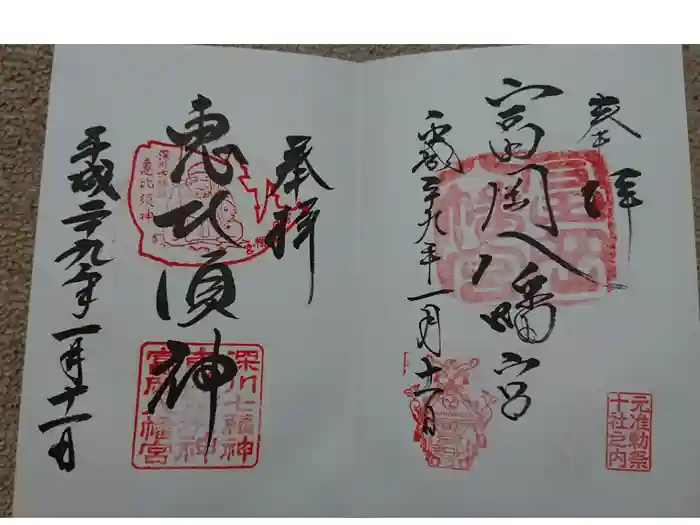 奉拝
富岡八幡宮
平成二十九年一月十一日
富岡八幡宮
元准勅祭
十社之内
奉拝
恵比須神
平成二十九年一月十一日
深川七福神
恵比須神
深川七福神
富岡八幡宮